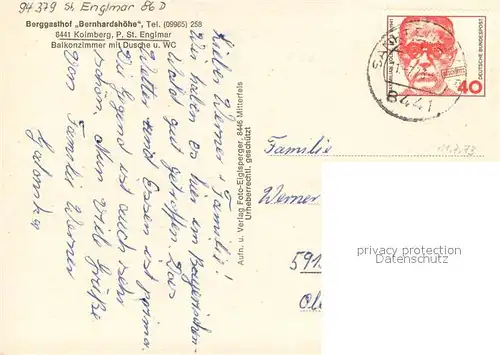 94379 St. Englmar BGD
Berggasthof „Bernhardshöhe", Tel. (09965) 258
8441 Kolmberg, P. St. Englmar
Balkonzimmer mit Dusche u. WC
Lieber Werner + Familie!
Wir haben es hier im Bayerischen-
Wald gut getroffen. Das
Wetter und Essen ist prima.
Die Gegend ist auch sehr
schön. Nun viel Grüße
von Familie Werner
Aufn. u. Verlag Foto-Eiglsperger, 8446 Mitterfels
Urheberrechtl. geschützt
Familie
Werner
591
DEUTSCHE BUNDESPOST
40
8441
privacy protection
www.ansichtskartenversand.com